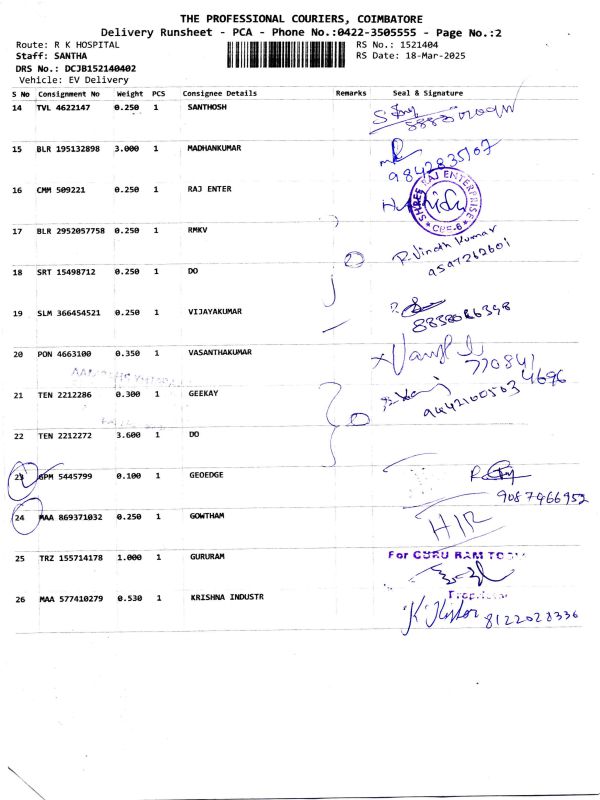 THE PROFESSIONAL COURIERS, COIMBATORE
Delivery Runsheet - PCA - Phone No.:0422-3505555 - Page No.:2
Route: R K HOSPITAL RS No.: 1521404
Staff: SANTHA RS Date: 18-Mar-2025
DRS No.: DCJB152140402
Vehicle: EV Delivery
S No Consignment No Weight PCS Consignee Details Remarks Seal & Signature
14 TVL 4622147 0.250 1 SANTHOSH
15 BLR 195132898 3.000 1 MADHANKUMAR
9842835107
16 CMM 509221 0.250 1 RAJ ENTER
SHREE RAJ ENTERPRISE
CBE-6
17 BLR 2952057758 0.250 1 RMKV
R. Vinoth Kumar
18 SRT 15498712 0.250 1 DO
19 SLM 366454521 0.250 1 VIJAYAKUMAR
20 PON 4663100 0.350 1 VASANTHAKUMAR
770841
4696
21 TEN 2212286 0.300 1 GEEKAY
22 TEN 2212272 3.600 1 DO
23 GPM 5445799 0.100 1 GEOEDGE
9087466952
24 MAA 869371032 0.250 1 GOWTHAM
H/R
25 TRZ 155714178 1.000 1 GURURAM
For GURU RAM
Proprietor
26 MAA 577410279 0.530 1 KRISHNA INDUSTR
8122028336